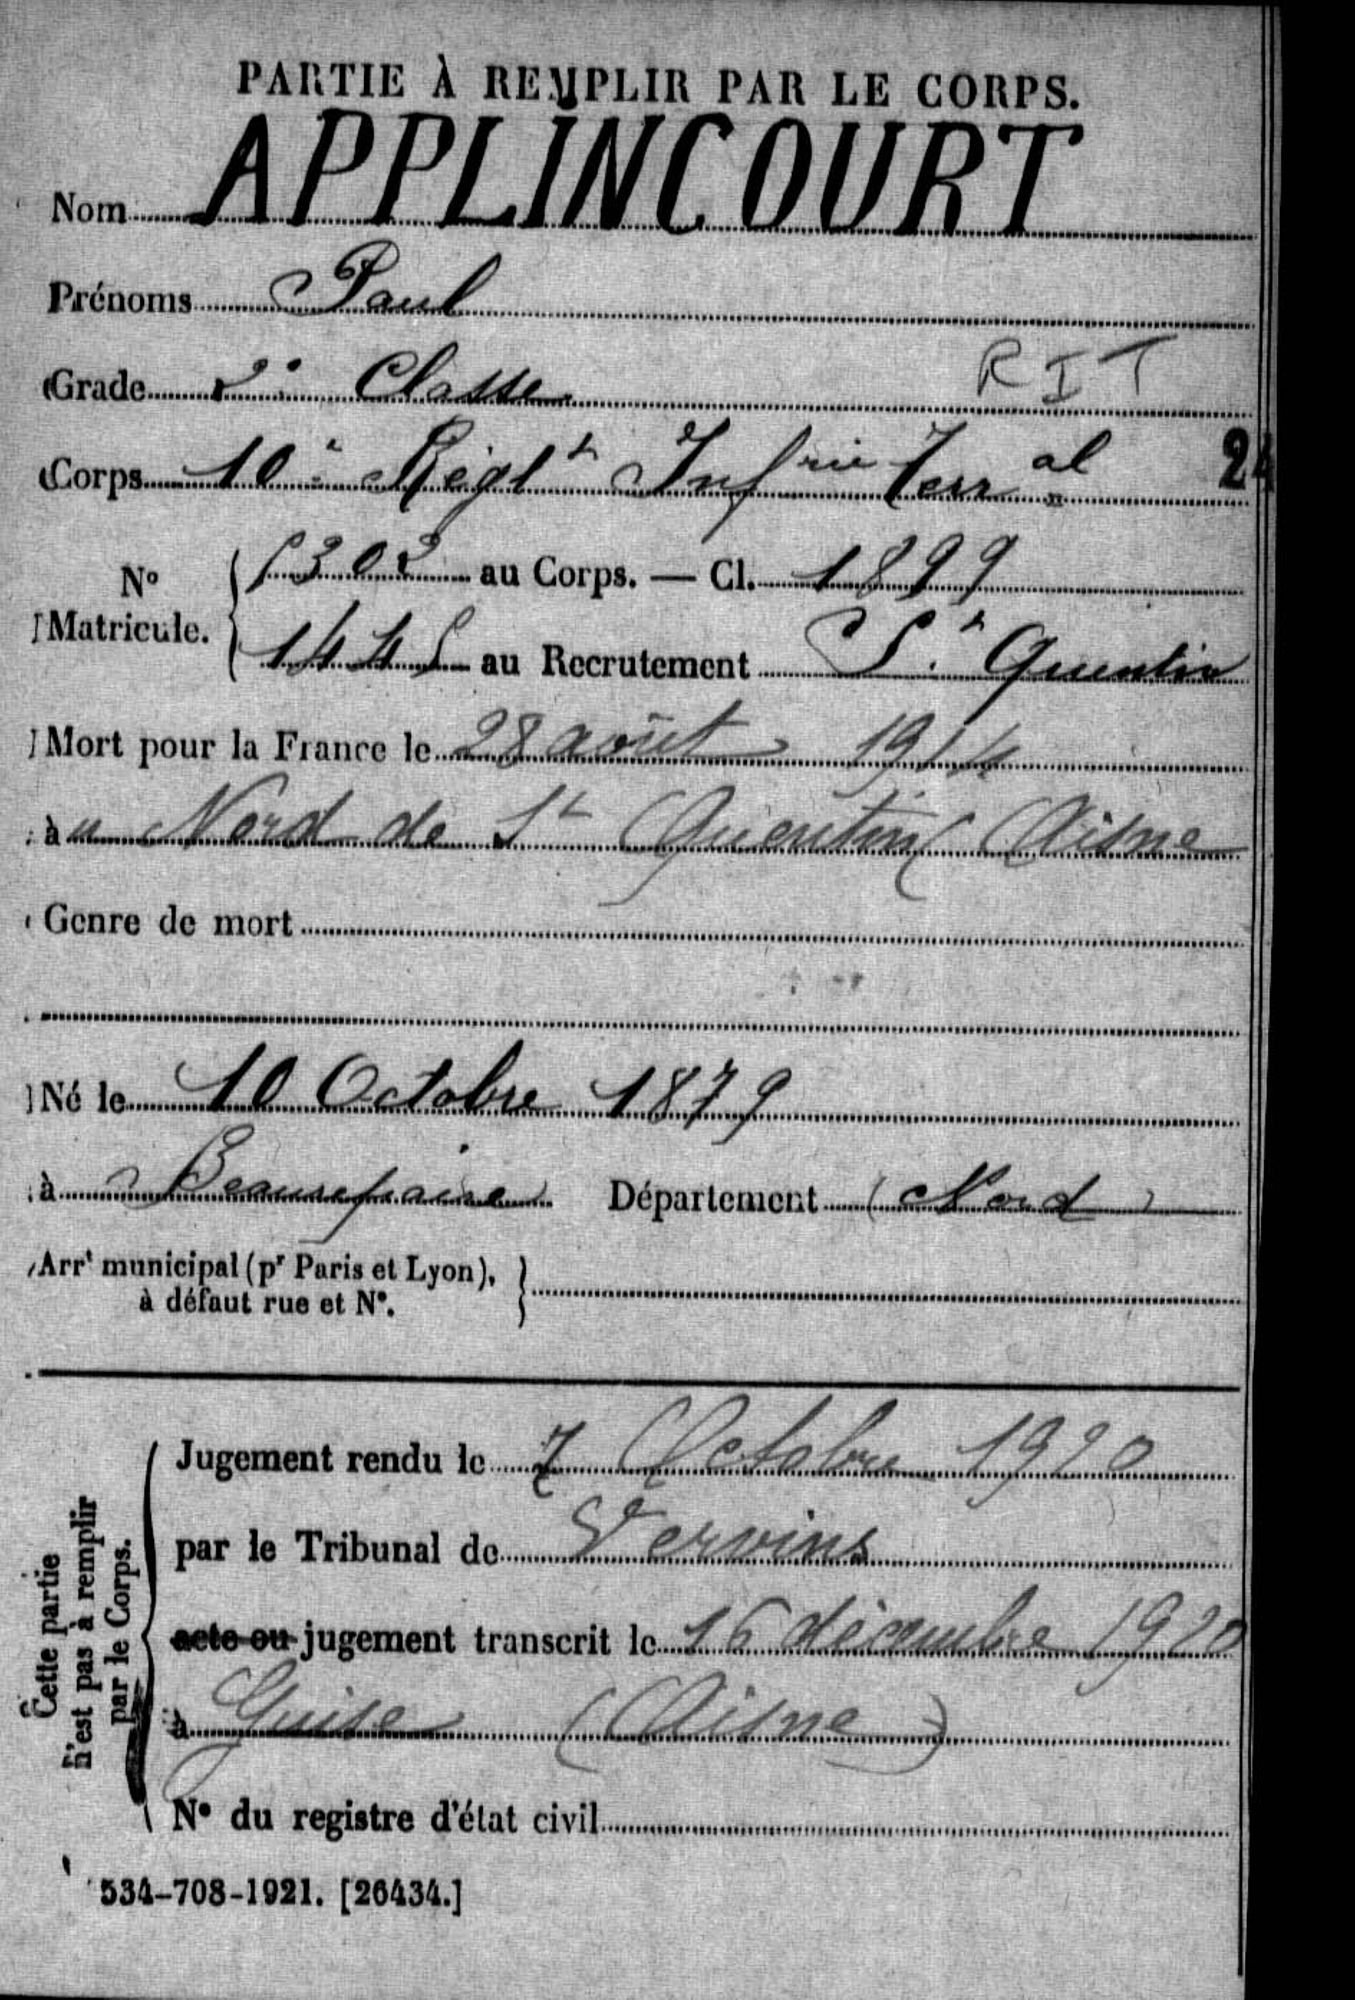 PARTIE À REMPLIR PAR LE CORPS.
Nom APPLINCOURT
Prénoms Paul
Grade 2e Classe
R I T
Corps 10e Régt Infrie Terral
24
No Matricule. { 5302 au Corps. — Cl. 1899
1445 au Recrutement St Quentin
Mort pour la France le 28 août 1914
àu Nord de St Quentin (Aisne
Genre de mort
Né le 10 Octobre 1879
à Beaurepaire Département (Nord)
Arrt municipal (pr Paris et Lyon),
à défaut rue et No. }
Cette partie
n'est pas à remplir
par le Corps.
Jugement rendu le 7 Octobre 1920
par le Tribunal de Vervins
acte ou jugement transcrit le 16 décembre 1920
à Guise (Aisne)
No du registre d'état civil
534-708-1921. [26434.]